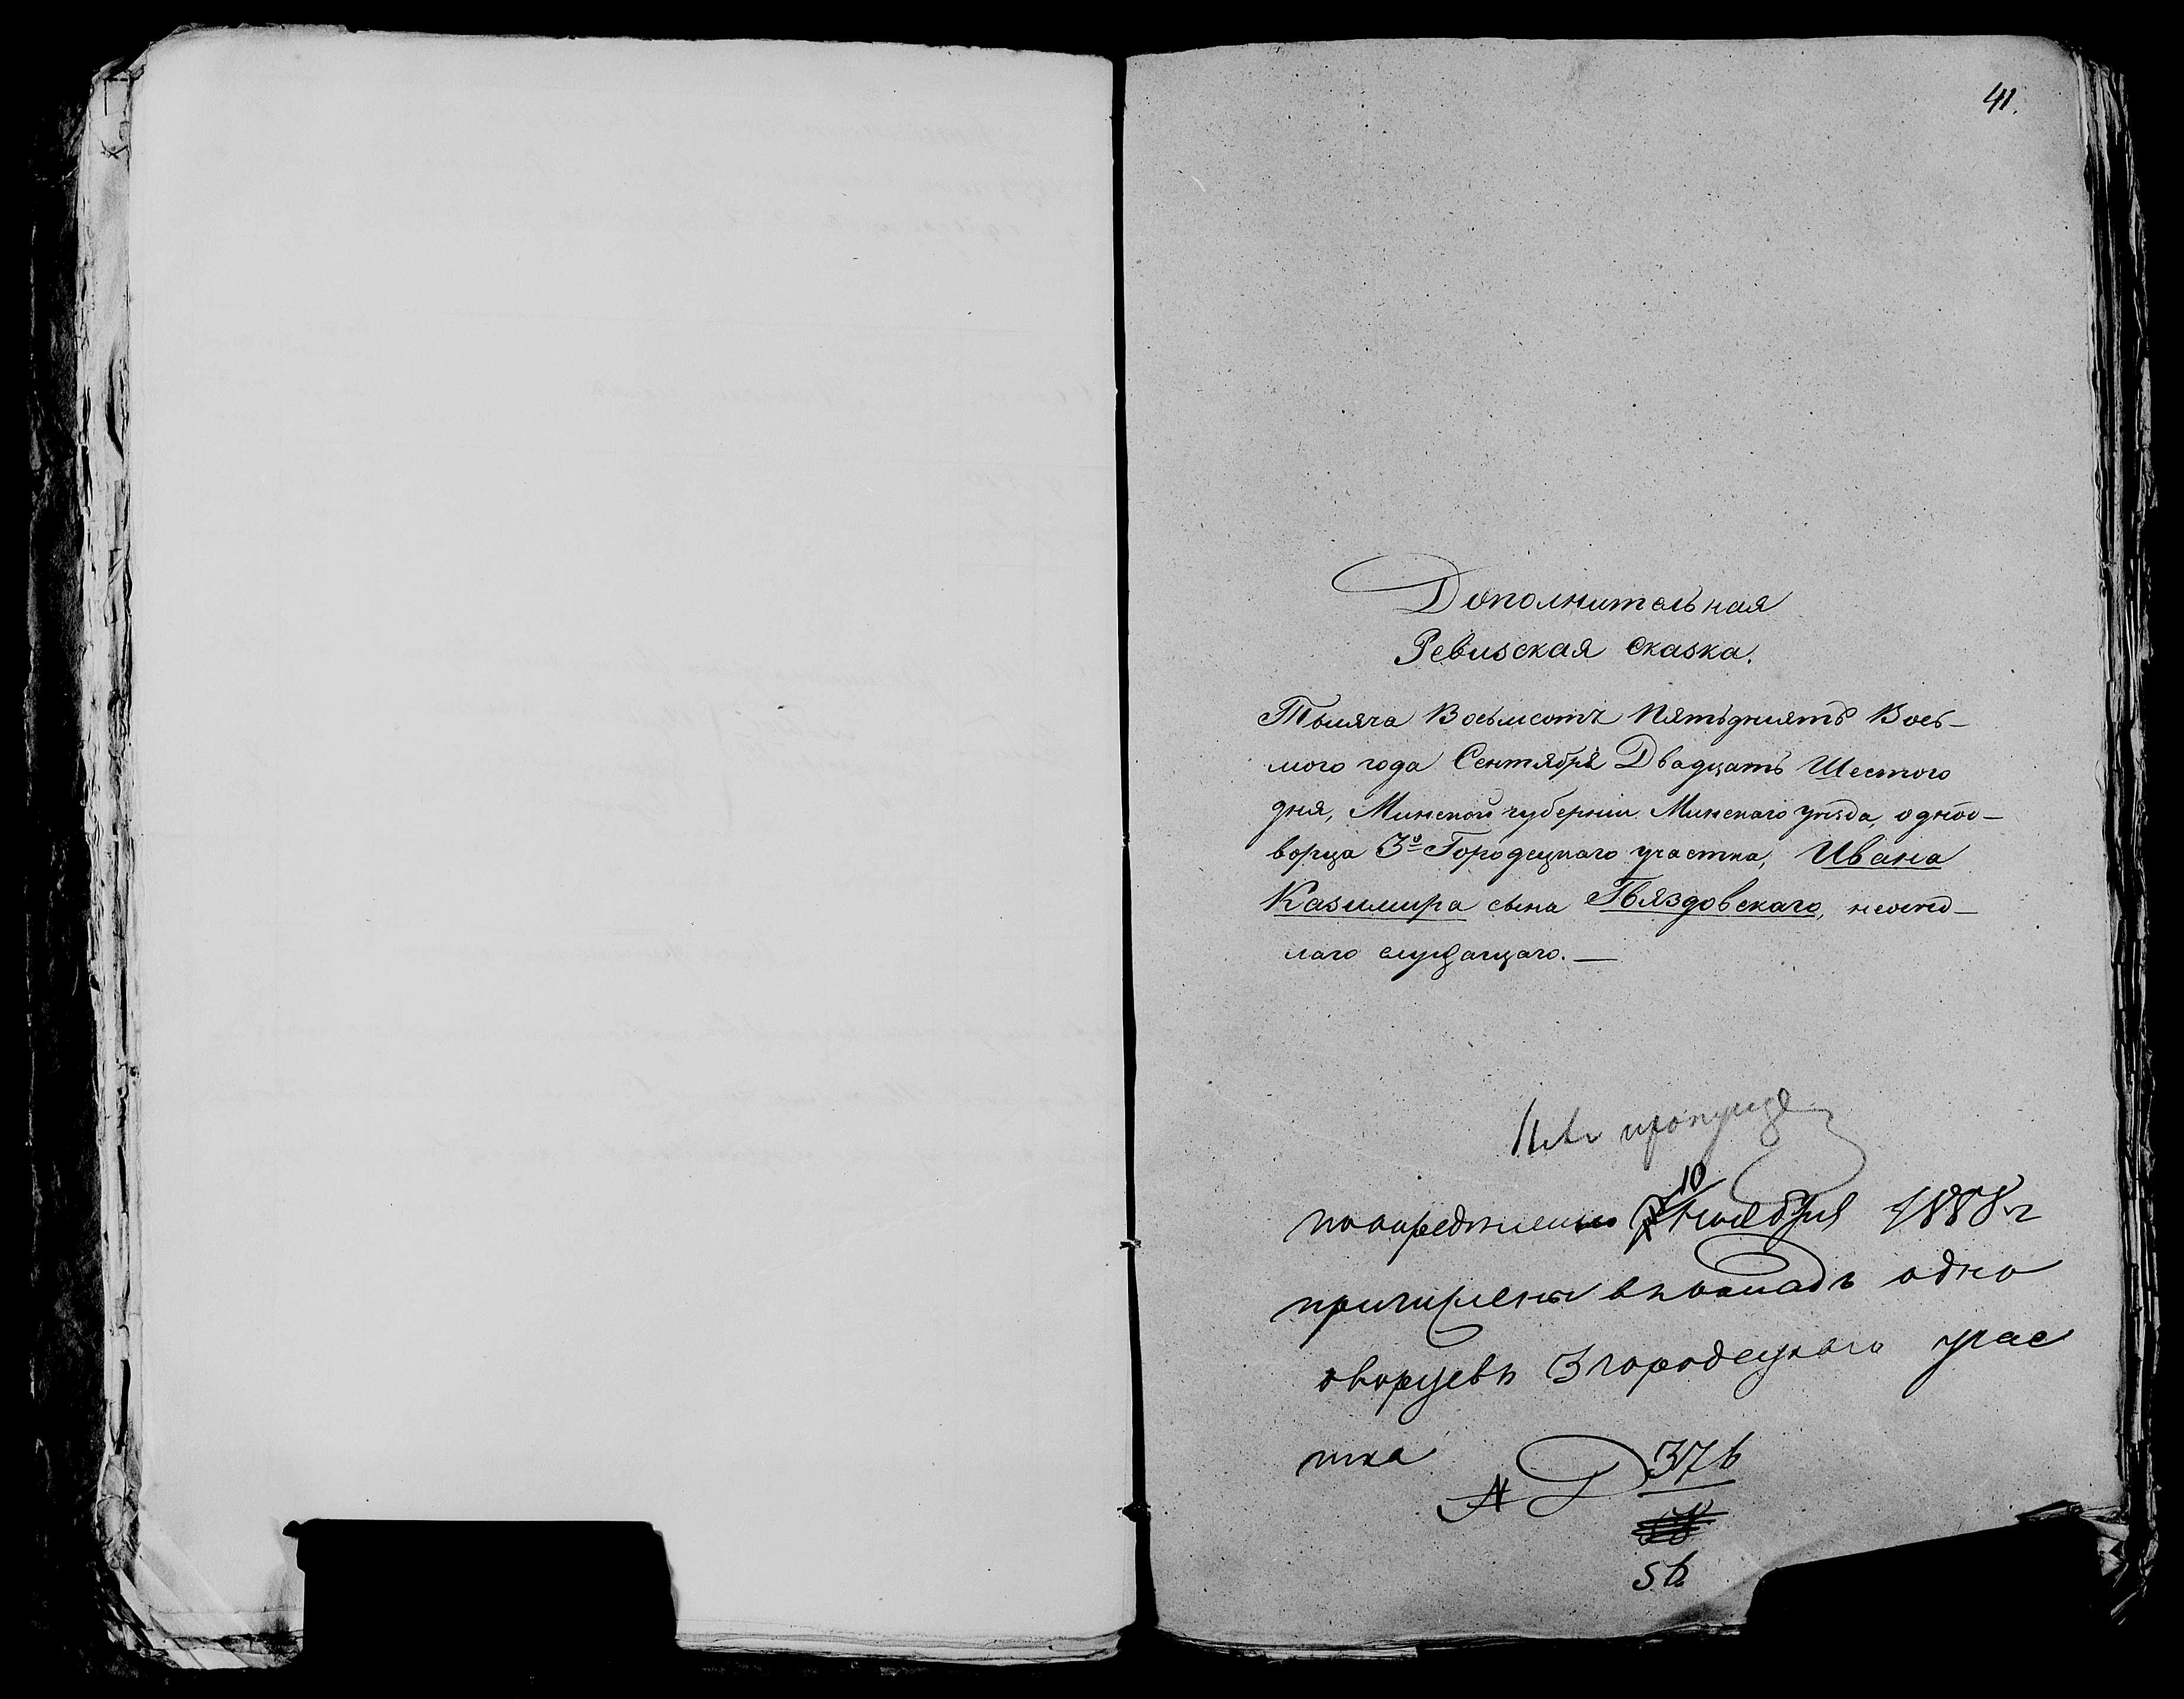 41.
Дополнительная
Ревизская сказка.
Тысяча Восьмсотъ Пятьдесятъ Вось-
мого года Сентября Двадцать Шестого
дня, Минской губерніи Минскаго уѣзда, одно-
ворца 3º Городецкаго участка, Ивана
Казимира сына Гвяздовскаго, неосѣд-
лаго служащаго.—
по определению 10 ноября 1858 г
причислены в окладъ одно
дворцевъ 3 городецкого учас
тка
№ Д 376
56